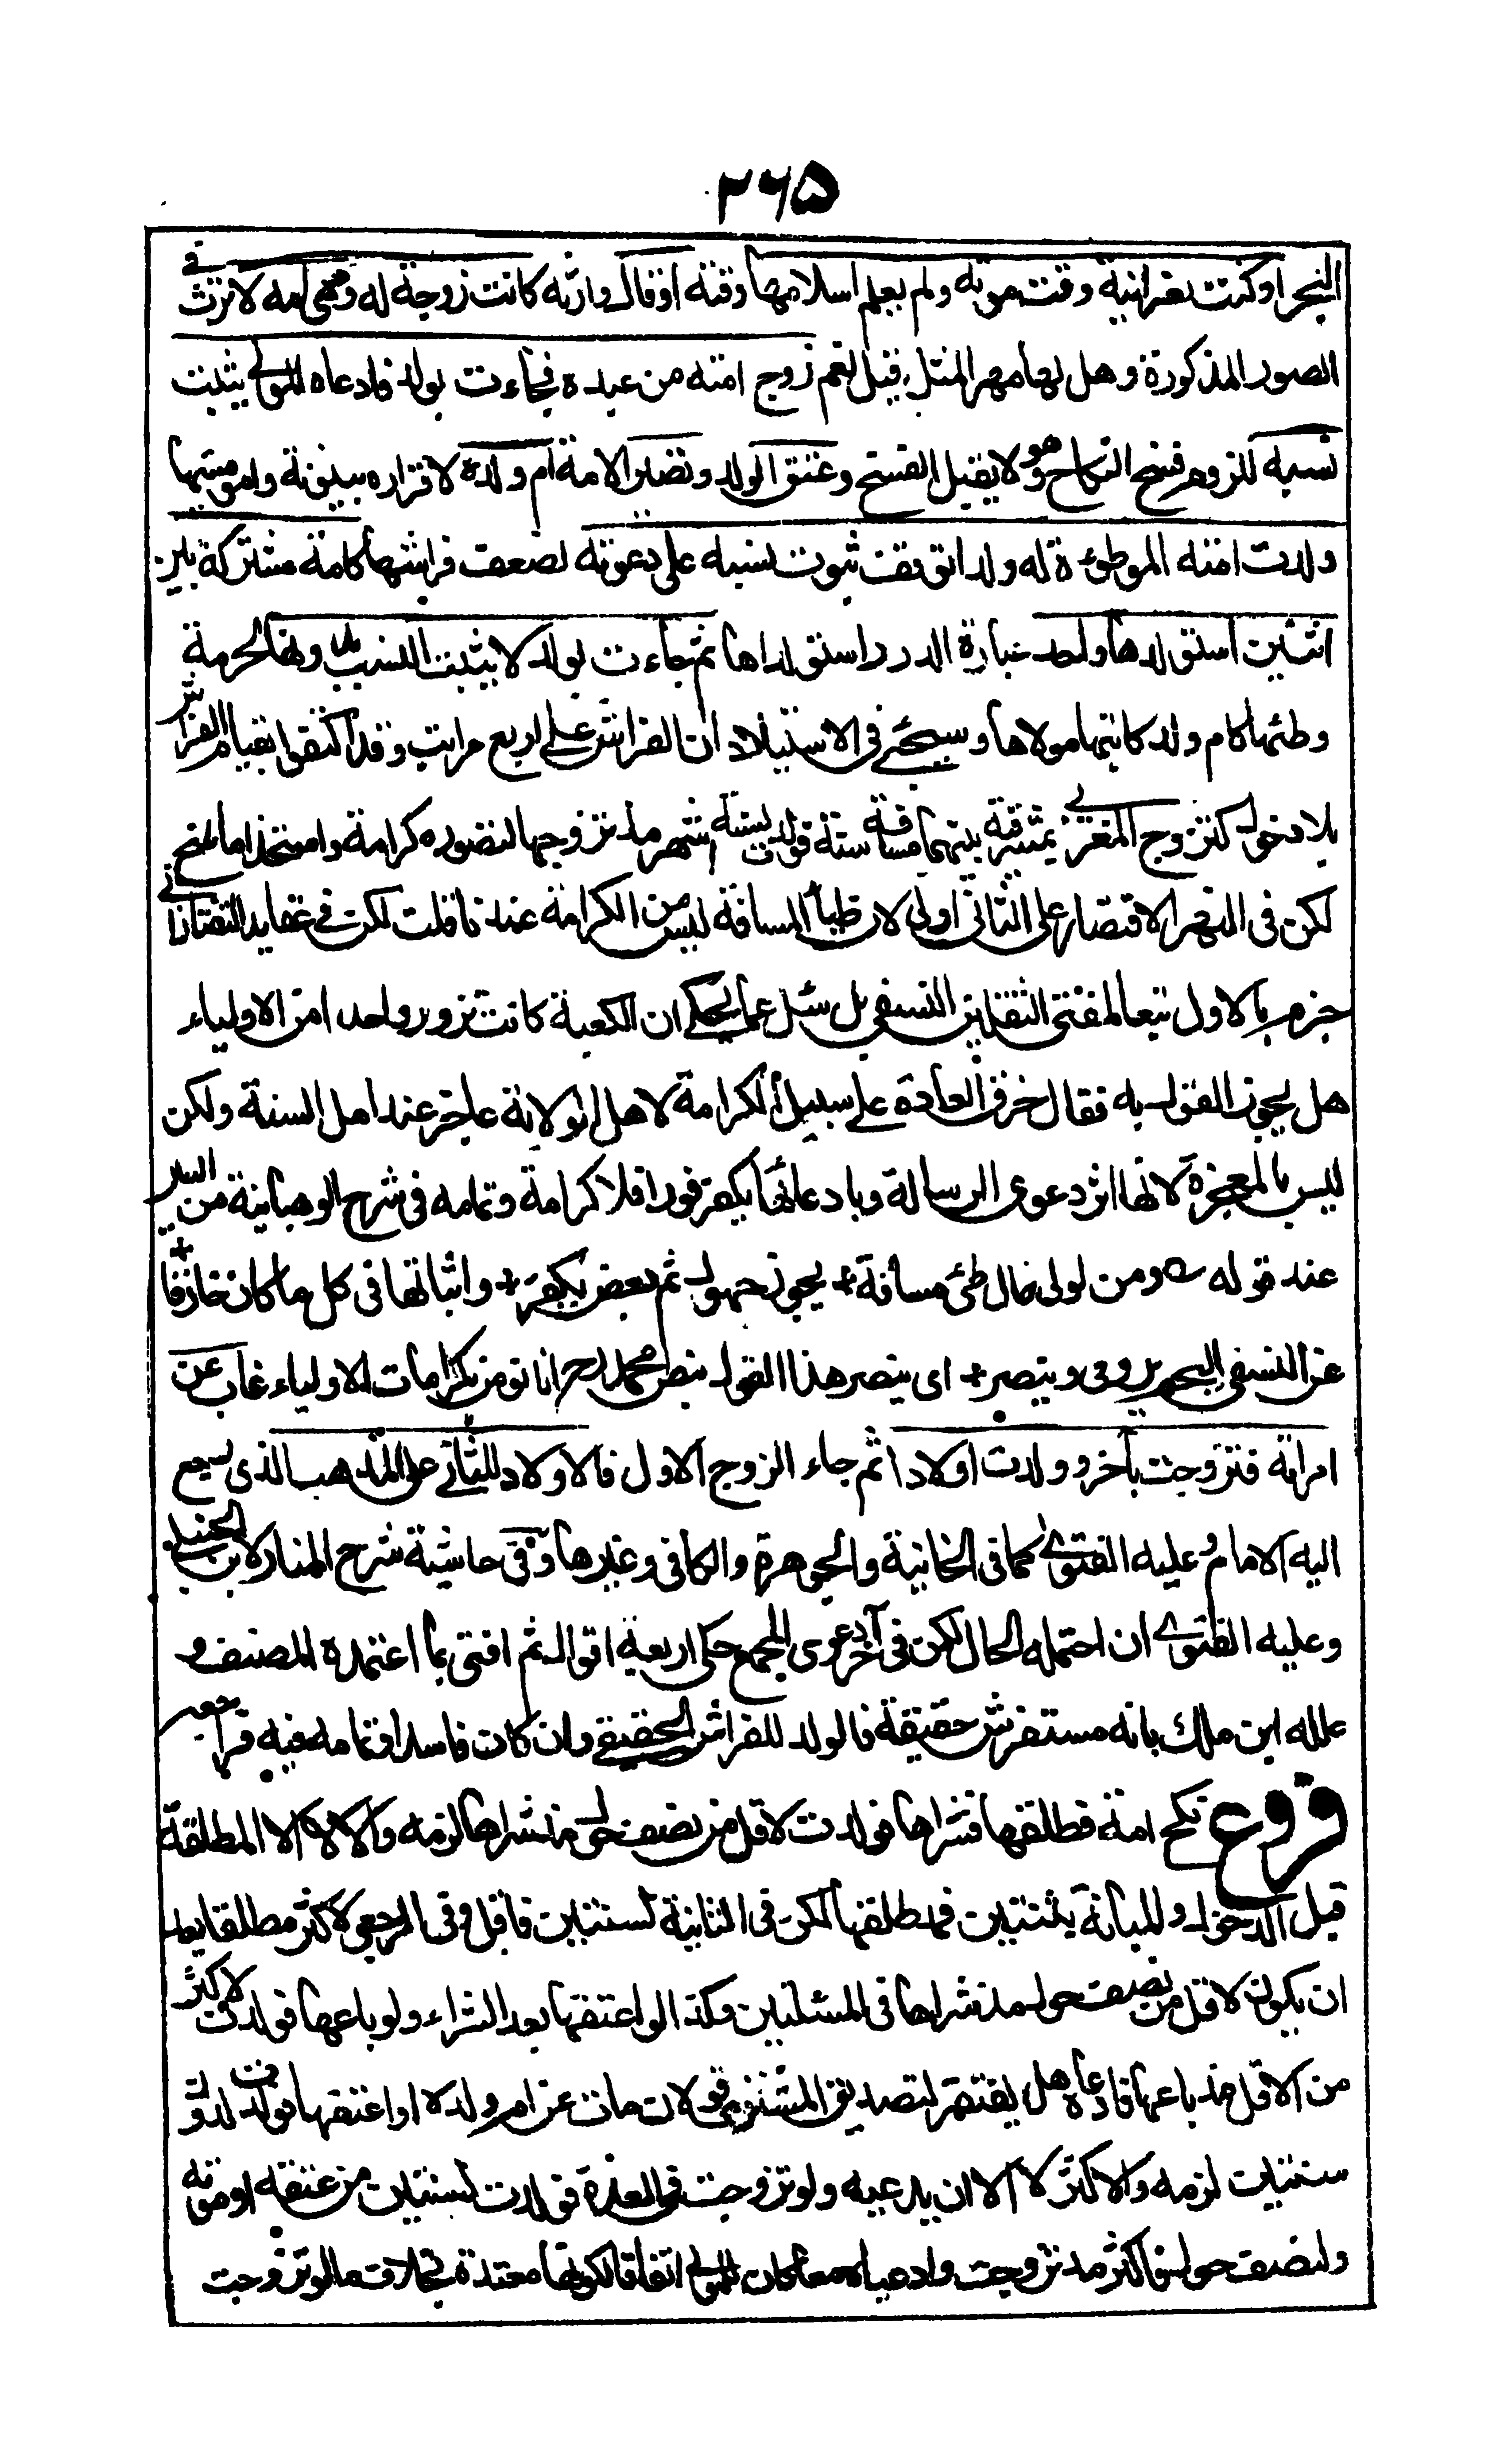 ٢٦٥
البحر او كنت نصرانية وقت موته ولم يعلم اسلامها وقته او قال وارثه كانت زوجة له وهى امه لا ترث في
الصور المذكورة وهل لها مهر المثل قيل نعم زوج امته من عبده فجاءت بولد فادعاه المولى يثبت
نسبه للزوم فسخ النكاح وهو لا يقبل الفسخ وعتق الولد وتصير الامة ام ولده لاقراره ببنوته وامومتها
ولدت امته الموطوءة له ولدا توقف ثبوت نسبه على دعوته لضعف فراشها كامة مشتركة بين
اثنين استولدها واحد عبارة الدرر استولداها ثم جاءت بولد لا يثبت النسب بلا دعوة لحرمة
وطئها كام ولد كاتبها مولاها وسيجئ فى الاستيلاد ان الفراش على اربع مراتب وقد اكتفوا بقيام الفراش
بلا دخول كتزوج المغربى بمشرقية بينهما مسافة سنة فولدت لستة اشهر مذ تزوجها لتصوره كرامة واستخداما فتح
لكن فى النهر الاقتصار على الثانى اولى لان طى المسافة ليس من الكرامة عندنا قلت لكن فى عقايد التفتازانى
جزم بالاول تبعا لمفتى الثقلين النسفى بل سئل عما يحكى ان الكعبة كانت تزور واحدا من الاولياء
هل يجوز القول به فقال خرق العادة على سبيل الكرامة لاهل الولاية جائز عند اهل السنة ولكن
ليس بالمعجزة لانها اثر دعوى الرسالة وبادعائها يكفر فورا فلا كرامة وتمامه فى شرح الوهبانية من السير
عند قوله ومن لولى قال طى مسافة + يجوز جهول ثم بعض يكفر + واثباتها فى كل ما كان خارقا +
عن النسفى البحر يروى وينصر + اى ينصر هذا القول بنص محمد انا نؤمن بكرامات الاولياء غاب عن
امراته فتزوجت بآخر وولدت اولادا ثم جاء الزوج الاول فالاولاد للثانى على المذهب الذى رجع
اليه الامام وعليه الفتوى كما فى الخانية والجوهرة والكافى وغيرها وفى حاشية شرح المنار لابن الحنبلى
وعليه الفتوى ان احتمله الحال لكن فى آخر دعوى المجمع حكى اربعة اقوال ثم افتى بما اعتمده المصنف و
علله ابن ملك بانه مستفرش حقيقة فالولد للفراش الحقيقى وان كان فاسدا وتمامه فيه فراجعه
فروع نكح امة فطلقها فشراها فولدت لاقل من نصف حول مذ شراها لزمه والا لا الا المطلقة
قبل الدخول والمبانة بثنتين فمذ طلقها لكن فى الثانية لسنتين فاقل وفى الرجعى لاكثر مطلقا بعد
ان يكون لاقل من نصف حول مذ شراها فى المسئلتين وكذا لو اعتقها بعد الشراء ولو باعها فولدت لاكثر
من الاقل مذ باعها فادعاه هل يفتقر لتصديق المشترى قولان مات عن ام ولده او اعتقها فولدت لدون
سنتين لزمه والاكثر لا الا ان يدعيه ولو تزوجت فى العدة فولدت لسنتين من عتقه او موته
ولنصف حول فاكثر مذ تزوجت وادعياه معا كان للمولى اتفاقا لكونها معتدة بخلاف ما لو تزوجت